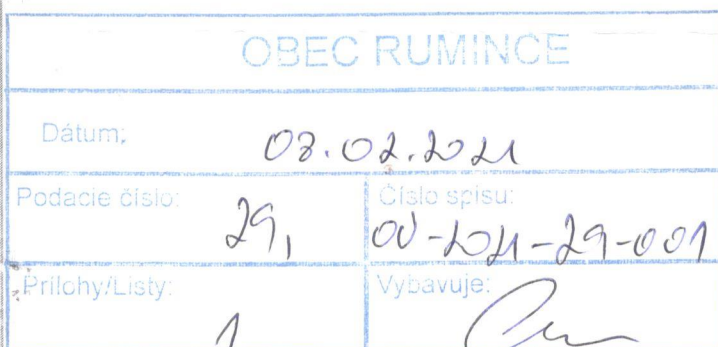 OBEC RUMINCE
Dátum: 03.02.2021
Podacie číslo: 29, Číslo spisu:
OÚ-2021-29-001
Prílohy/Listy: 1 Vybavuje: